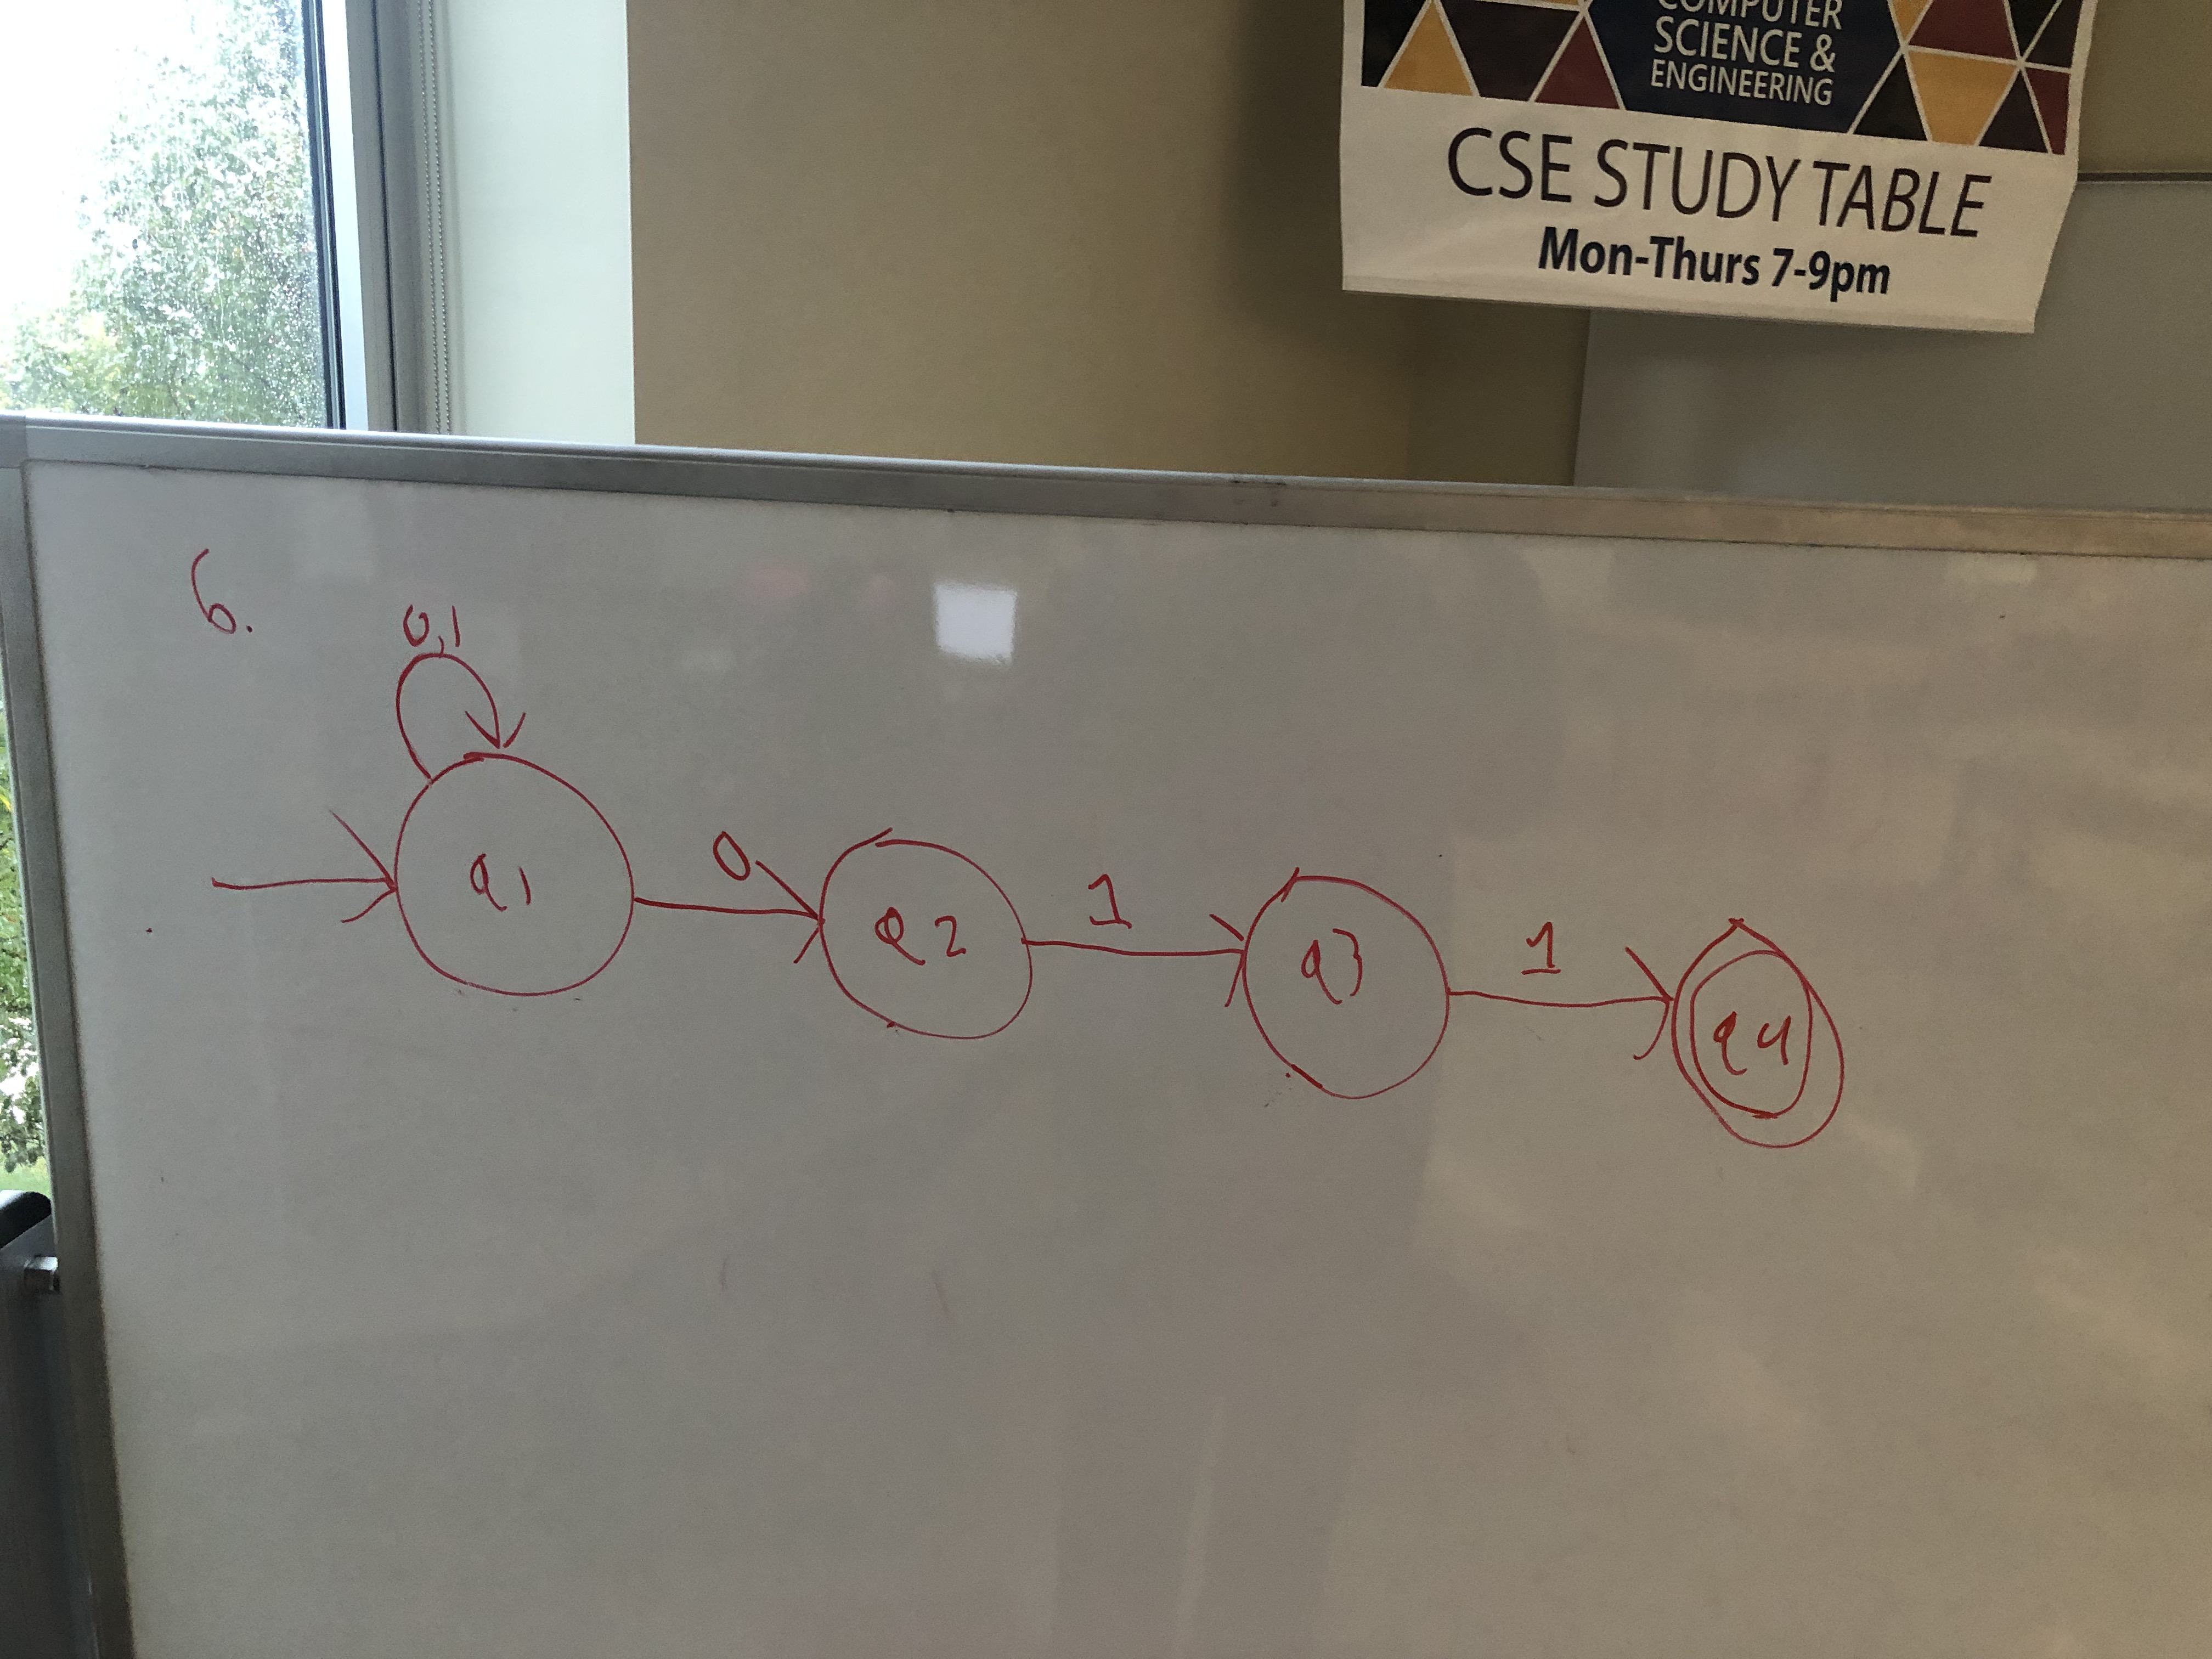 COMPUTER
SCIENCE &
ENGINEERING
CSE STUDY TABLE
Mon-Thurs 7-9pm
6.
0,1
q1
0
q2
1
q3
1
q4